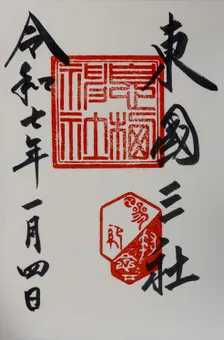 東國三社
息栖神社
令和七年一月四日